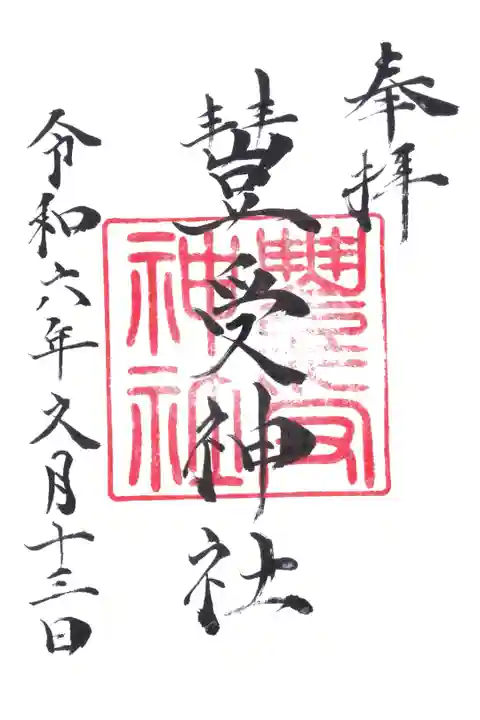 奉拝
豊受神社
豊受神社
令和六年文月十三日